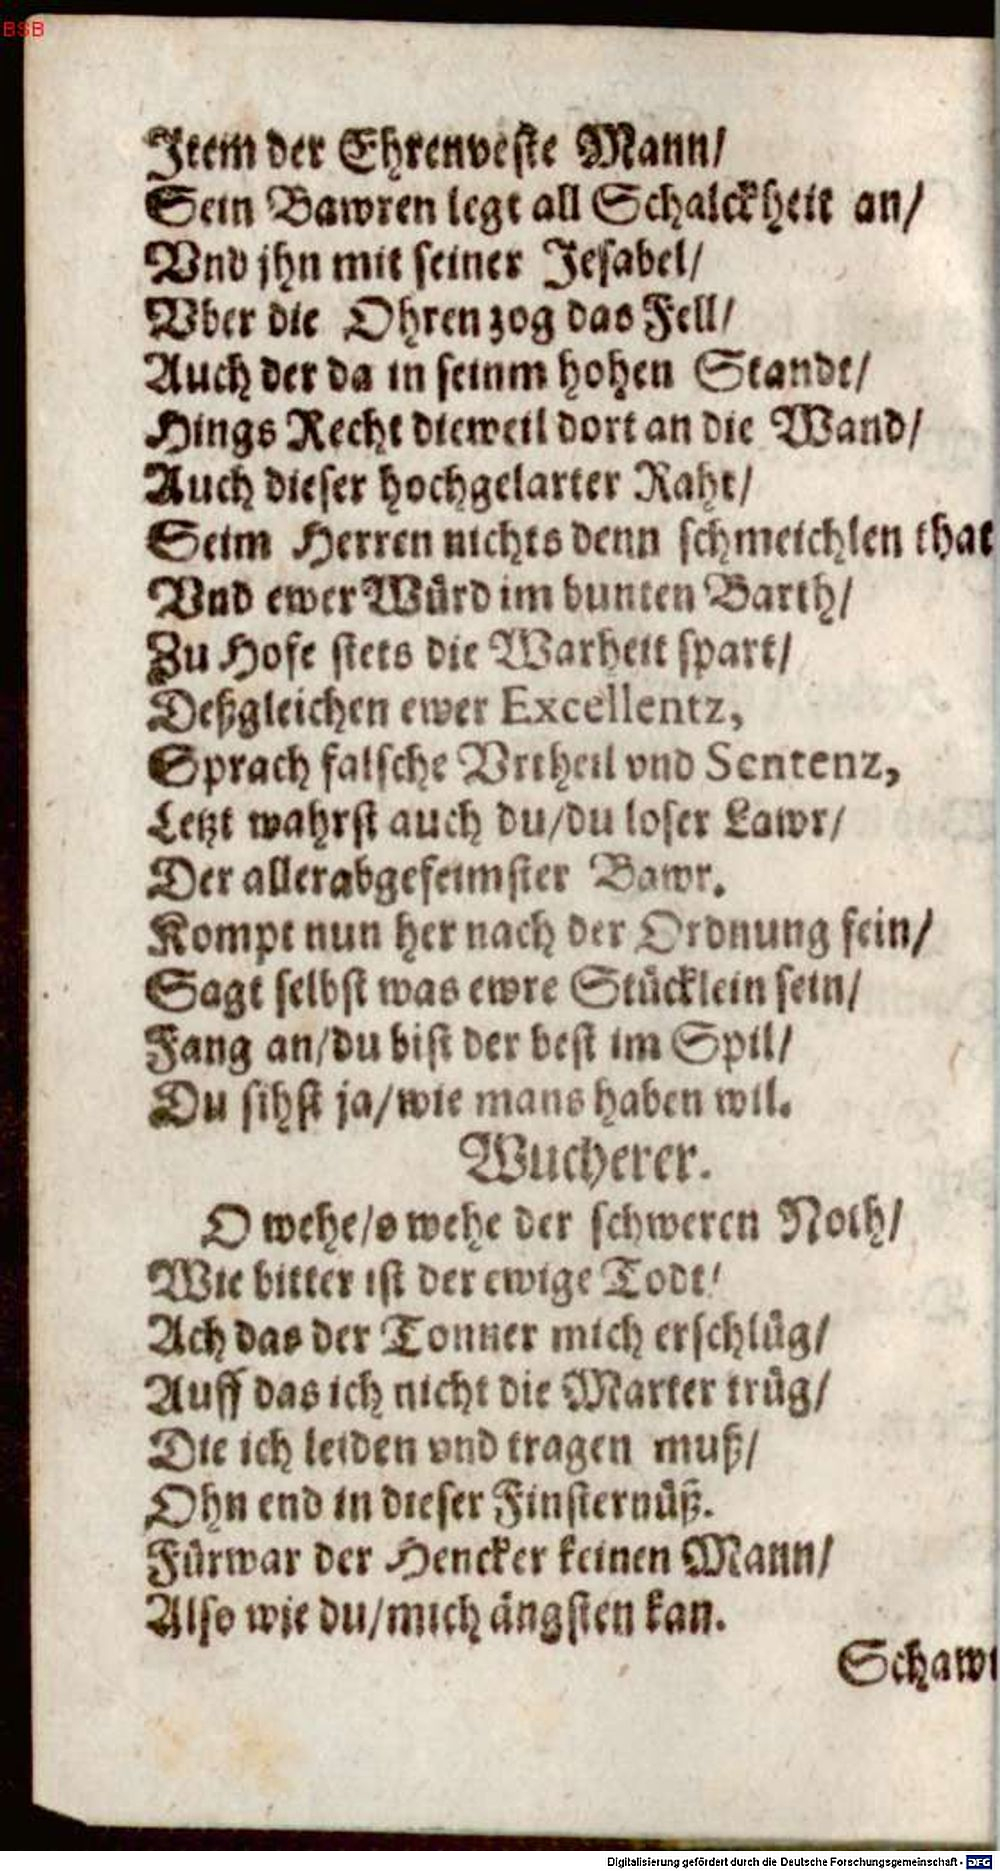 BSB
Item der Ehrenveste Mann/
Sein Bawren legt all Schalckheit an/
Vnd jhn mit seiner Jesabel/
Vber die Ohren zog das Fell/
Auch der da in seinm hohen Standt/
Hings Recht dieweil dort an die Wand/
Auch dieser hochgelarter Raht/
Seim Herren nichts denn schmeichlen that
Vnd ewer Wůrd im bunten Barth/
Zu Hofe stets die Warheit spart/
Deßgleichen ewer Excellentz,
Sprach falsche Vrtheil vnd Sentenz,
Letzt wahrst auch du/du loser Lawr/
Der allerabgefeimster Bawr.
Kompt nun her nach der Ordnung fein/
Sagt selbst was ewre Stůcklein sein/
Fang an/du bist der best im Spil/
Du sihst ja/wie mans haben wil.
Wucherer.
O wehe/o wehe der schweren Noth/
Wie bitter ist der ewige Todt/
Ach das der Tonner mich erschlůg/
Auff das ich nicht die Marter trůg/
Die ich leiden vnd tragen muß/
Ohn end in dieser Finsternůß.
Fůrwar der Hencker keinen Mann/
Also wie du/mich ångsten kan.
Schaw
Digitalisierung gefördert durch die Deutsche Forschungsgemeinschaft - DFG